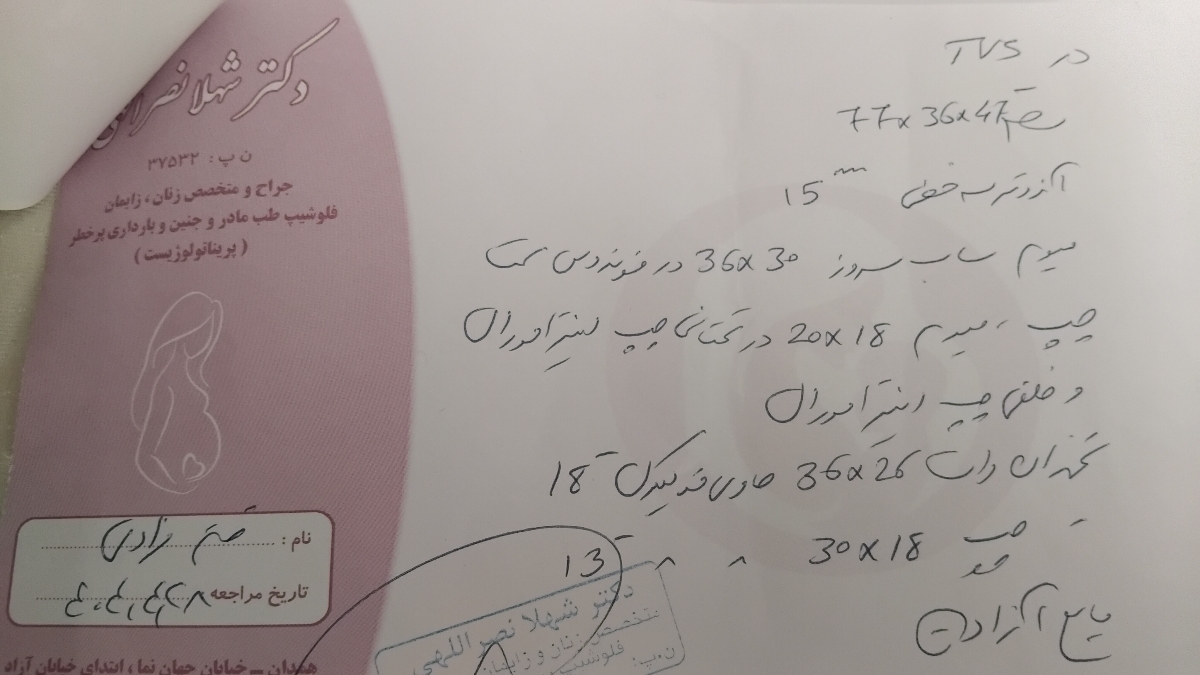 دکتر شهلا نصراللهی
ن پ: ۳۷۵۳۲
جراح و متخصص زنان، زایمان
فلوشیپ طب مادر و جنین و بارداری پرخطر
(پریناتولوژیست)
نام:
تاریخ مراجعه
همدان - خیابان جهان نما، ابتدای خیابان آزاد
در TVS
77x36x47
15 mm
میوم ساب سروز 36x30 در فوندوس سمت
چپ، میوم 20x18 در تحتانی چپ اینترامورال
و خلفی چپ اینترامورال
تخمدان راست 36x26 حاوی فولیکول 18
چپ 30x18 " " 13
مایع آزاد
دکتر شهلا نصراللهی
متخصص زنان و زایمان
فلوشیپ
ن.پ: